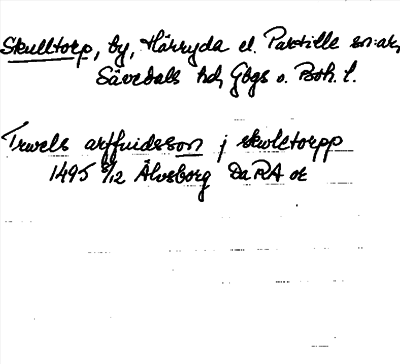 Skulltorp, by, Härryda el. Partille sn:ar,
Sävedals hd, Gbgs o. Boh. l.
Truels arffuidsson j skoletorpp
1495 5/12 Älvsborg DaRA or